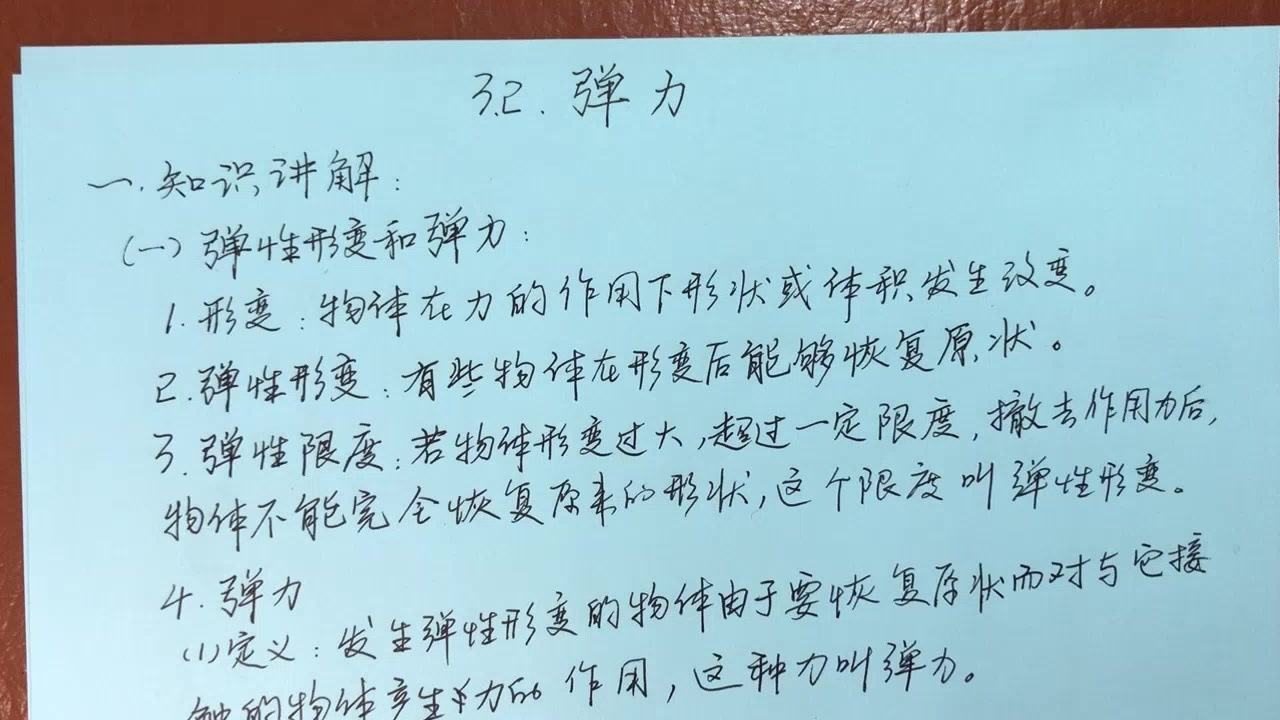 3.2. 弹力
一. 知识讲解:
(一) 弹性形变和弹力:
1. 形变: 物体在力的作用下形状或体积发生改变。
2. 弹性形变: 有些物体在形变后能够恢复原状。
3. 弹性限度: 若物体形变过大,超过一定限度,撤去作用力后,
物体不能完全恢复原来的形状,这个限度叫弹性形变。
4. 弹力
(1)定义: 发生弹性形变的物体由于要恢复原状而对与它接
触的物体产生力的作用,这种力叫弹力。